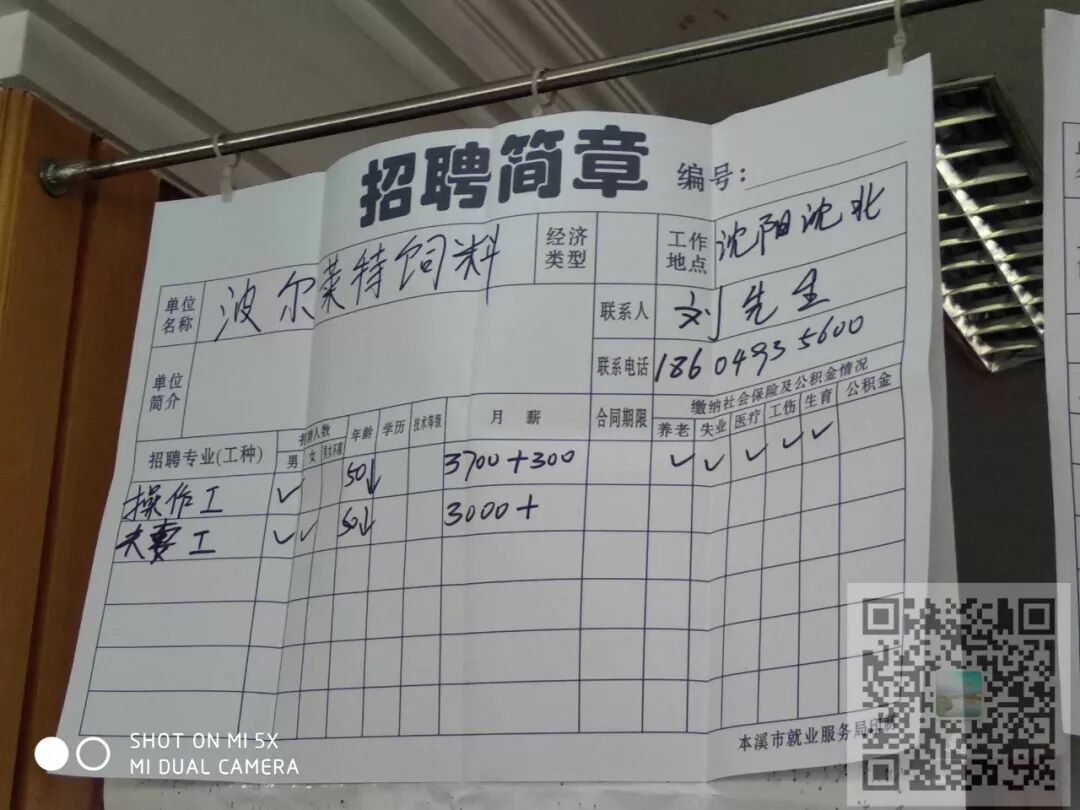 招聘简章
编号：
单位名称 波尔莱特饲料 经济类型 工作地点 沈阳沈北
联系人 刘先生
单位简介 联系电话 18604935600
招聘专业(工种) 招聘人数 男 女 男女不限 年龄 学历 技术等级 月薪 合同期限 缴纳社会保险及公积金情况 养老 失业 医疗 工伤 生育 公积金
操作工 ✓ 50↓ 3700+300 ✓ ✓ ✓ ✓ ✓
夫妻工 ✓ ✓ 50↓ 3000+
本溪市就业服务局印制
SHOT ON MI 5X
MI DUAL CAMERA